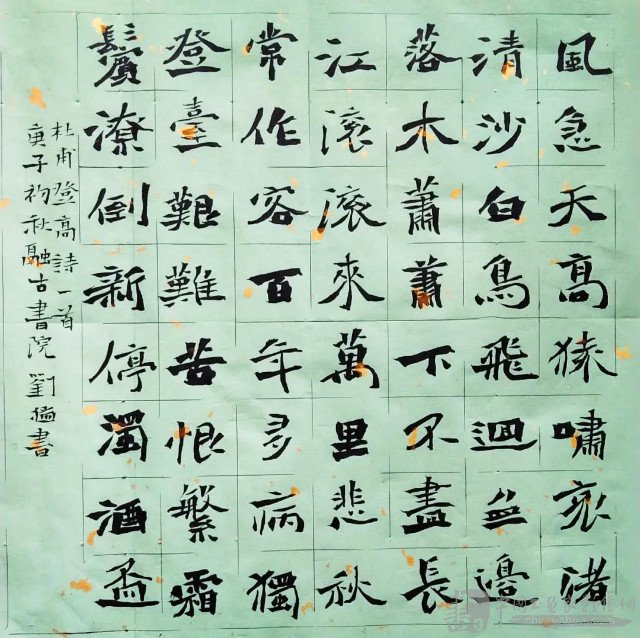 風急天高猿嘯哀渚
清沙白鳥飛迴無邊
落木蕭蕭下不盡長
江滚滚來萬里悲秋
常作客百年多病獨
登臺艱難苦恨繁霜
鬢潦倒新停濁酒盃
杜甫登高詩一首
庚子初秋融古書院劉猛書